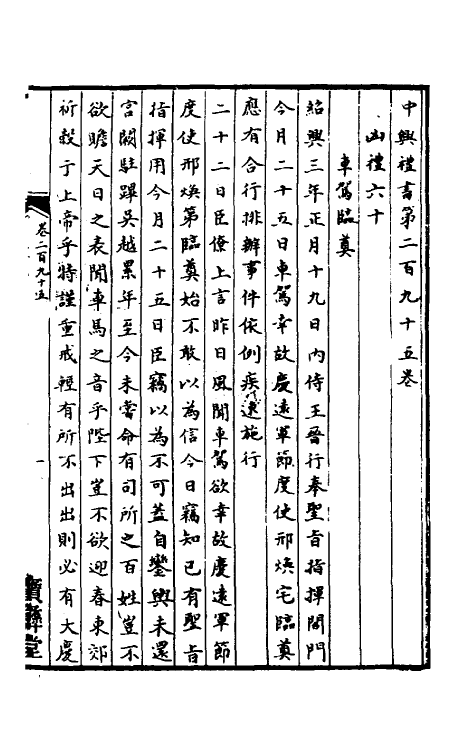 中興禮書第二百九十五卷
凶禮六十
車駕臨奠
紹興三年正月十九日內侍王晉行奉聖旨指揮閤門
今月二十五日車駕幸故慶遠軍節度使邢煥宅臨奠
應有合行排辦事件依例疾速施行
二十二日臣僚上言昨日風聞車駕欲幸故慶遠軍節
度使邢煥第臨奠始不敢以為信今日竊知已有聖旨
指揮用今月二十五日臣竊以為不可蓋自鑾輿未還
宮闕駐蹕吳越累年至今未嘗命有司所之百姓豈不
欲瞻天日之表聞車馬之音乎陛下豈不欲迎春東郊
祈穀于上帝乎特謹重戒輕有所不出出則必有大慶
卷二百九十五
一
寶彝堂